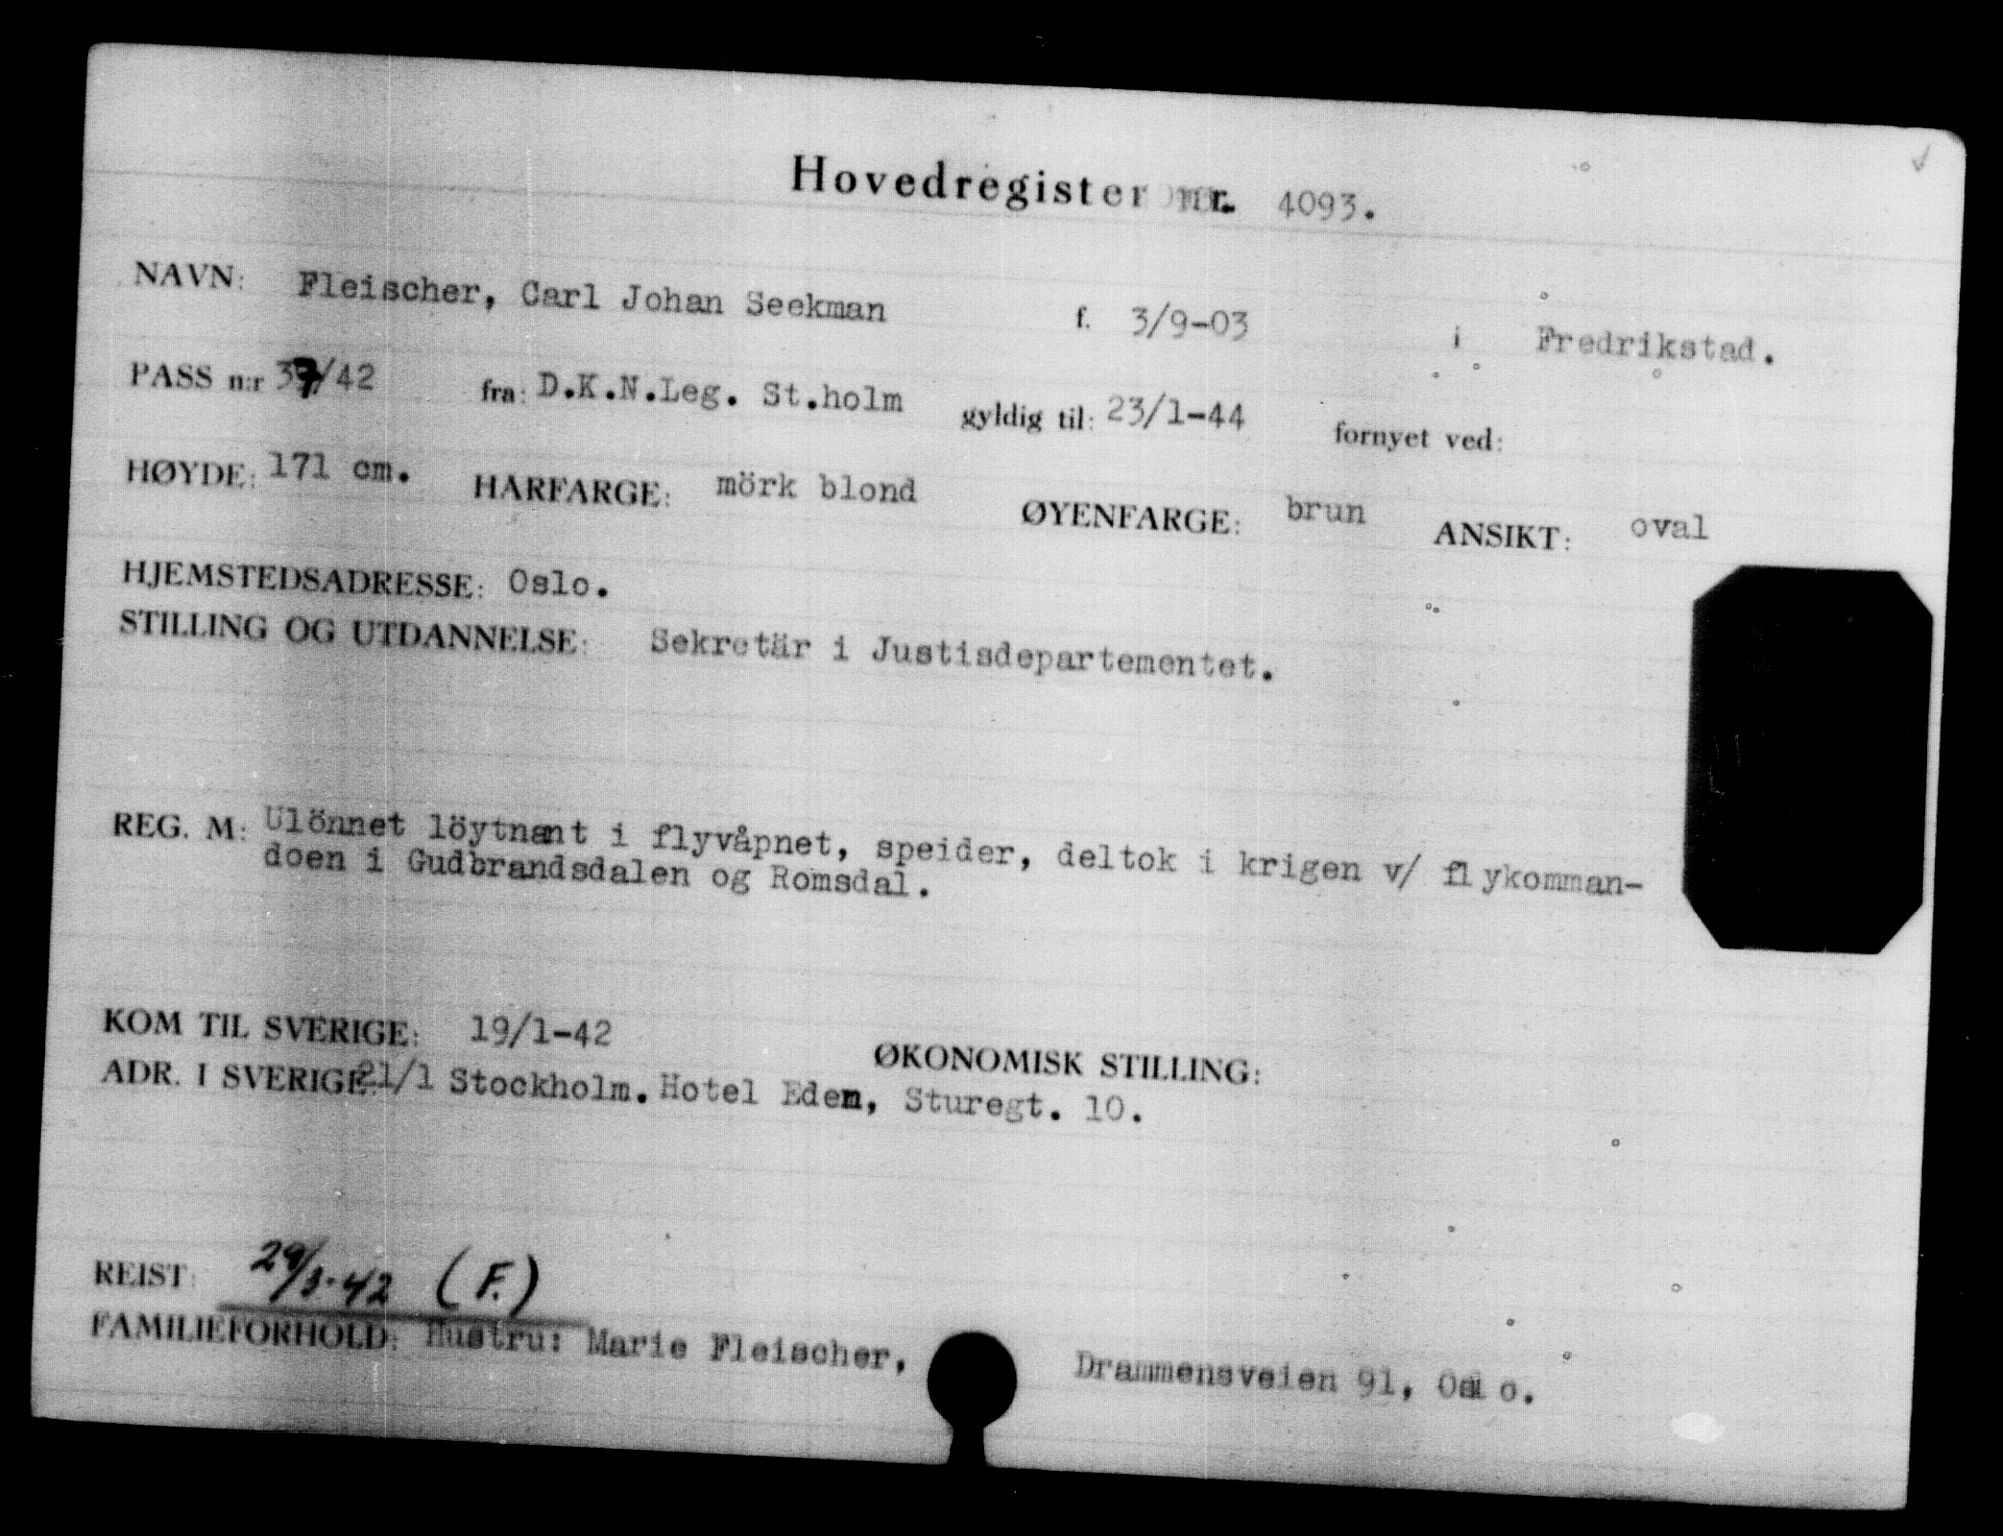 Hovedregister nr. 4093.
NAVN: Fleischer, Carl Johan Seekman f. 3/9-03 i Fredrikstad.
PASS n:r 37/42 fra: D.K.N.Leg. St.holm gyldig til: 23/1-44 fornyet ved:
HØYDE: 171 cm. HÅRFARGE: mörk blond ØYENFARGE: brun ANSIKT: oval
HJEMSTEDSADRESSE: Oslo.
STILLING OG UTDANNELSE: Sekretär i Justisdepartementet.
REG. M: Ulönnet löytnant i flyvåpnet, speider, deltok i krigen v/ flykomman-
doen i Gudbrandsdalen og Romsdal.
KOM TIL SVERIGE: 19/1-42 ØKONOMISK STILLING:
ADR. I SVERIGE: 21/1 Stockholm. Hotel Eden, Sturegt. 10.
REIST: 29/3-42 (F.)
FAMILIEFORHOLD: Hustru: Marie Fleischer, Drammensveien 91, Oslo.